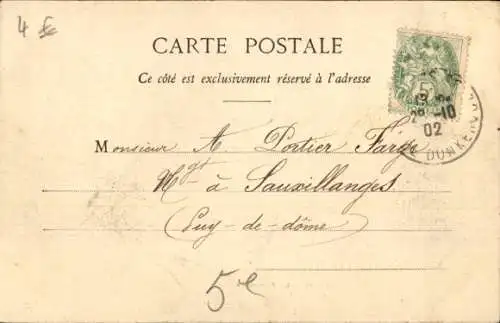 4 €
CARTE POSTALE
Ce côté est exclusivement réservé à l'adresse
5
28 -10
02
DUNKERQUE
Monsieur A. Portier Farge
Ngt à Sauxillanges
(Puy-de-dôme)
5€